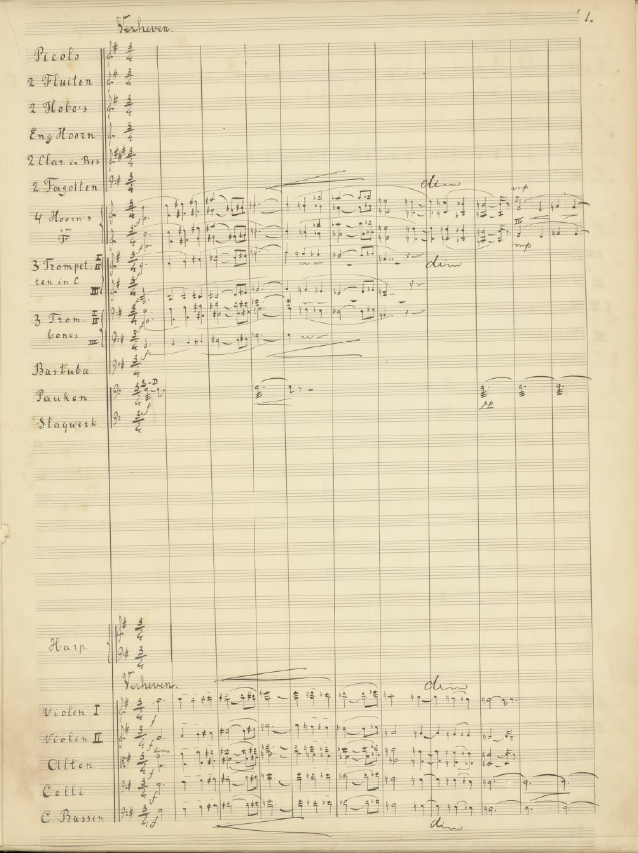 1.
Verheven.
Picolo
2 Fluiten
2 Hobo's
Eng Hoorn
2 Clar. in Bes
2 Fagotten
dim
mp
4 Hoorn's
in
F
III
mp
3 Trompet. I II
ten in C
III
dim
3 Trom. I II
bones III
Bastuba
Pauken
f
pp
Slagwerk
Harp
Verheven.
dim
Violen I
f
Violen II
f
Alten
f
Celli
f
C. Bassen
f
dim